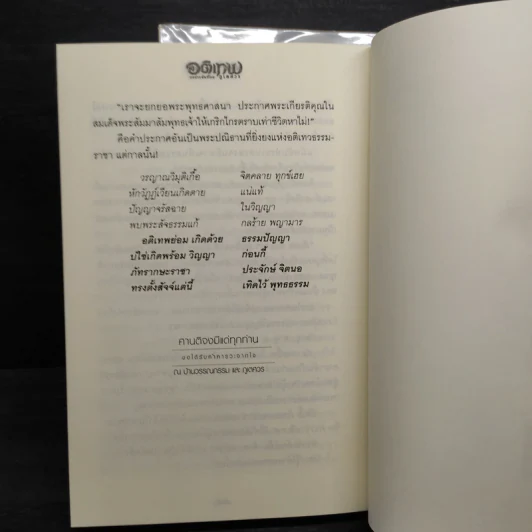 อติเทพ
"เราจะยกยอพระพุทธศาสนา ประกาศพระเกียรติคุณใน
สมเด็จพระสัมมาสัมพุทธเจ้าให้เกริกไกรตราบเท่าชีวิตหาไม่!"
คือคำประกาศอันเป็นพระปณิธานที่ยิ่งยงแห่งอติเทวธรรม-
ราชา แต่กาลนั้น!
วรญาณวิมุติเกื้อ จิตคลาย ทุกข์เฮย
หักวัฏฏ์เวียนเกิดตาย แน่แท้
ปัญญาจรัสฉาย ในวิญญา
พบพระสัจธรรมแก้ กลร้าย พญามาร
อติเทพย่อม เกิดด้วย ธรรมปัญญา
ปใช่เกิดพร้อม วิญญา ก่อนกี้
ภัทรากษะราชา ประจักษ์ จิตนอ
ทรงตั้งสัจจ์แด่นี้ เทิดไว้ พุทธธรรม
ศานติจงมีแด่ทุกท่าน
ณ บ้านวรรณกรรม และ ภูเตศวร